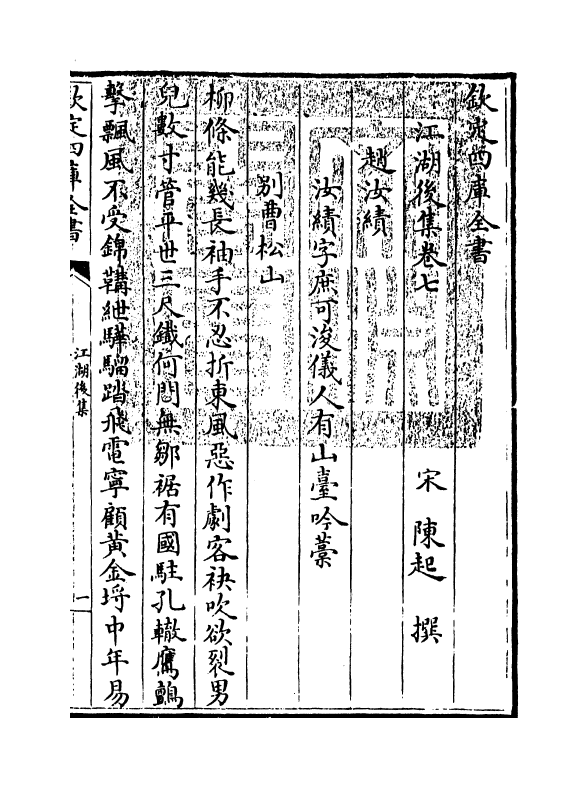 欽定四庫全書
江湖後集卷七　宋　陳起　撰
趙汝績
汝績字庶可浚儀人有山臺吟藁
别曹松山
柳條能幾長袖手不忍折東風惡作劇客袂吹欲裂男
兒數寸管平世三尺鐵何閱無鄒裾有國駐孔轍鷹鸇
擊飄風不受錦韝紲驊騮踏飛電寧顧黄金埒中年易
欽定四庫全書
江湖後集
一